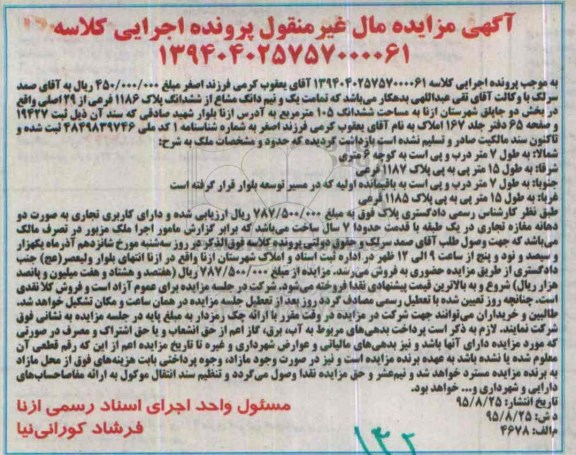 آگهی مزایده مال غیرمنقول پرونده اجرایی کلاسه
۱۳۹۴۰۴۰۲۵۷۵۷۰۰۰۰۶۱
به موجب پرونده اجرایی کلاسه ۱۳۹۴۰۴۰۲۵۷۵۷۰۰۰۰۶۱ آقای یعقوب کرمی فرزند اصغر مبلغ ۴۵۰/۰۰۰/۰۰۰ ریال به آقای صمد
سرلک با وکالت آقای تقی عبداللهی بدهکار می‌باشد که تمامت یک و نیم دانگ مشاع از ششدانگ پلاک ۱۱۸۶ فرعی از ۲۹ اصلی واقع
در بخش دو جاپلق شهرستان ازنا به مساحت ششدانگ ۱۰۵ مترمربع به آدرس ازنا بلوار شهید صادقی که سند آن ذیل ثبت ۱۹۴۲۷
و صفحه ۶۵ دفتر جلد ۱۶۷ املاک به نام آقای یعقوب کرمی فرزند اصغر به شماره شناسنامه ۱ کد ملی ۴۸۴۹۸۳۹۷۴۶ ثبت شده و
تاکنون سند مالکیت صادر و تسلیم نشده است بازداشت گردیده که حدود و مشخصات ملک به شرح:
شمالا: به طول ۷ متر درب و پی است به کوچه ۶ متری
شرقا: به طول ۱۵ متر پی به پی پلاک ۱۱۸۷ فرعی
جنوبا: به طول ۷ متر درب و پی است به باقیمانده اولیه که در مسیر توسعه بلوار قرار گرفته است
غربا: به طول ۱۵ متر پی به پی پلاک ۱۱۸۵ فرعی
طبق نظر کارشناس رسمی دادگستری پلاک فوق به مبلغ ۷۸۷/۵۰۰/۰۰۰ ریال ارزیابی شده و دارای کاربری تجاری به صورت دو
دهانه مغازه تجاری در یک طبقه با قدمت حدودا ۷ سال ساخت می‌باشد که برابر گزارش مامور اجرا ملک مزبور در تصرف مالک
می‌باشد که جهت وصول طلب آقای صمد سرلک و حقوق دولتی پرونده کلاسه فوق‌الذکر در روز سه‌شنبه مورخ شانزدهم آذرماه یکهزار
سیصد و نود و پنج از ساعت ۹ الی ۱۲ ظهر در اداره ثبت اسناد و املاک شهرستان ازنا واقع در ازنا انتهای بلوار ولیعصر(عج) جنب
دادگستری از طریق مزایده حضوری به فروش می‌رسد. مزایده از مبلغ ۷۸۷/۵۰۰/۰۰۰ ریال (هفتصد و هشتاد و هفت میلیون و پانصد
هزار ریال) شروع و به بالاترین قیمت پیشنهادی نقدا فروخته می‌شود. شرکت در جلسه مزایده برای عموم آزاد است و فروش کلا نقدی
است. چنانچه روز تعیین شده با تعطیل رسمی مصادف گردد روز بعد از تعطیل جلسه مزایده در همان ساعت و مکان تشکیل خواهد شد.
طالبین و خریداران می‌توانند جهت شرکت در مزایده در وقت مقرر با ارائه چک رمزدار به مبلغ پایه در جلسه مزایده به نشانی فوق
شرکت نمایند. لازم به ذکر است پرداخت بدهی‌های مربوط به آب، برق، گاز اعم از حق انشعاب و یا حق اشتراک و مصرف در صورتی
که مورد مزایده دارای آنها باشد و نیز بدهی‌های مالیاتی و عوارض شهرداری و غیره تا تاریخ مزایده اعم از این که رقم قطعی آن
معلوم شده یا نشده باشد به عهده برنده مزایده است و نیز در صورت وجود مازاد، وجوه پرداختی بابت هزینه‌های فوق از محل مازاد
به برنده مزایده مسترد خواهد شد و نیم‌عشر و حق مزایده نقدا وصول می‌گردد و تنظیم سند انتقال موکول به ارائه مفاصاحساب‌های
دارایی و شهرداری و... خواهد بود.
تاریخ انتشار: ۹۵/۸/۲۵
د ش: ۹۵/۸/۲۵
م‌الف: ۴۶۷۸
مسئول واحد اجرای اسناد رسمی ازنا
فرشاد کورانی‌نیا